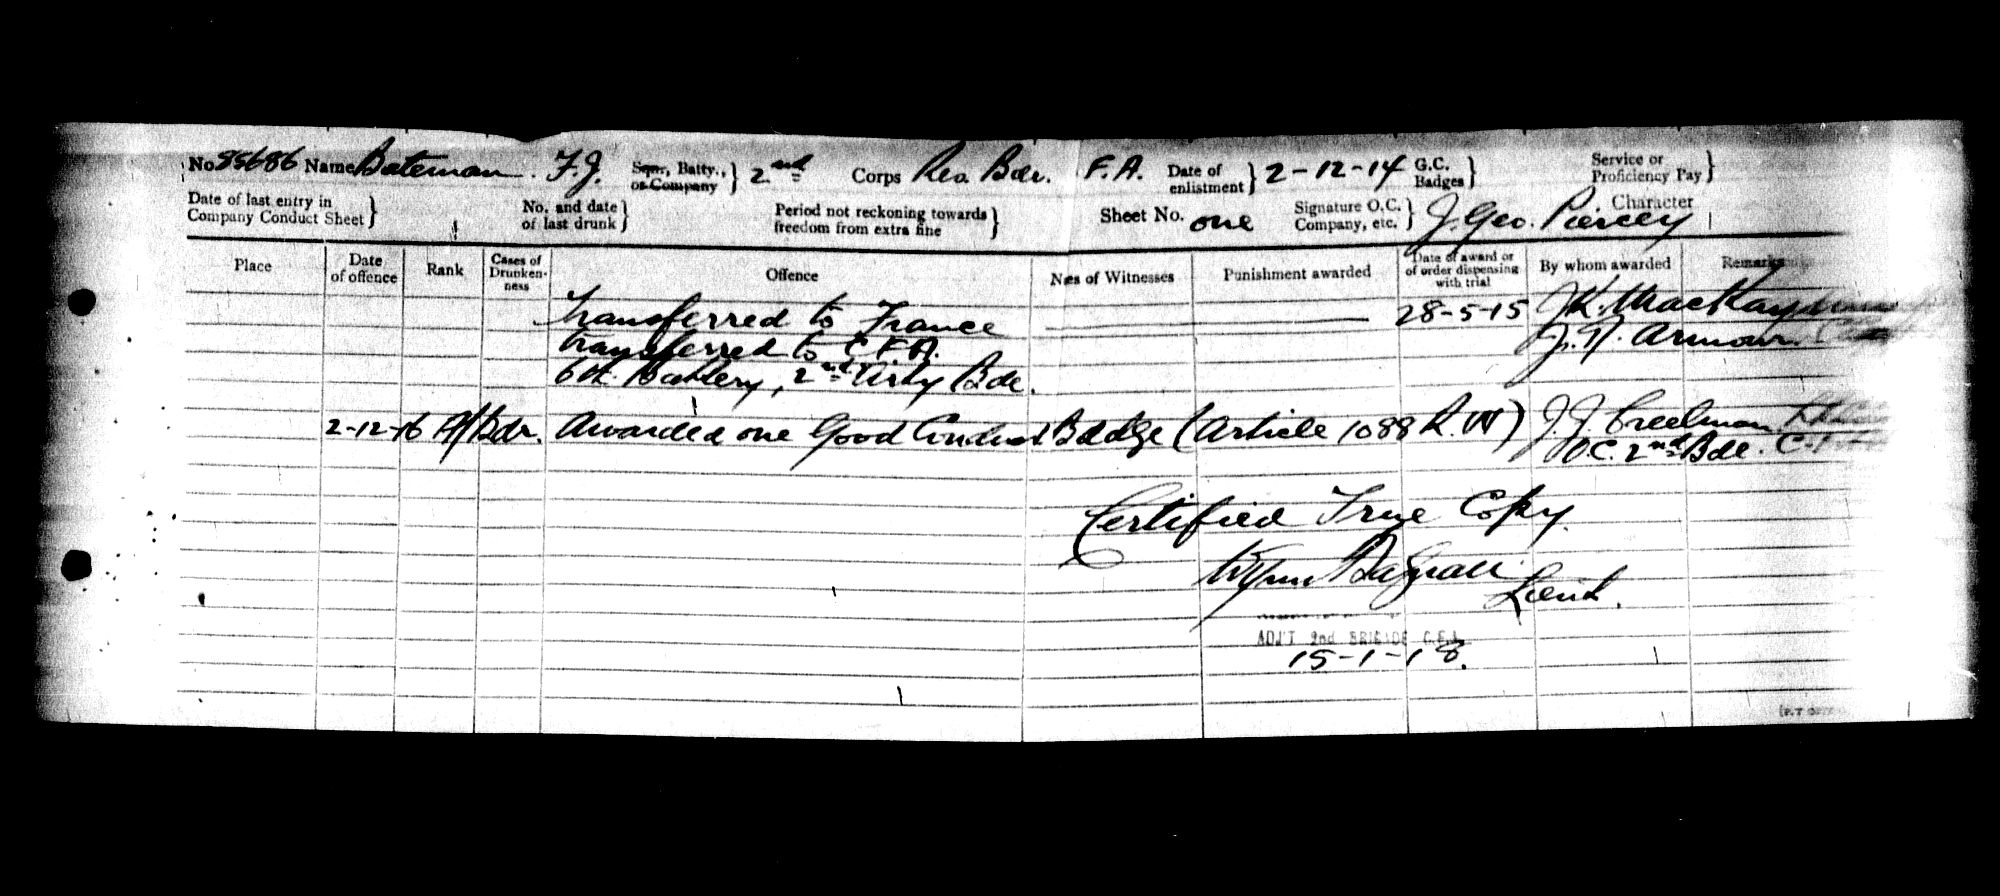 No 55686 Name Bateman. F.J. Sqn., Batty., or Company } 2nd Corps Res Bde. F.A. Date of enlistment } 2-12-14 G.C. Badges } Service or Proficiency Pay }
Date of last entry in Company Conduct Sheet } No. and date of last drunk } Period not reckoning towards freedom from extra fine } Sheet No. one Signature O.C. Company, etc. } J. Geo. Piercey Character
Place Date of offence Rank Cases of Drunkenness Offence Names of Witnesses Punishment awarded Date of award or of order dispensing with trial By whom awarded Remarks
Transferred to France 28-5-15 J.K. MacKay
Transferred to C.F.A. Armour.
6th Battery, 2nd Arty Bde.
2-12-16 A/Bdr. Awarded one Good Conduct Badge (Article 1088 R.W) J.J. Creelman
O.C. 2nd Bde.
Certified True Copy.
Lieut.
ADJ'T 2nd BRIGADE C.F.A.
15-1-18.